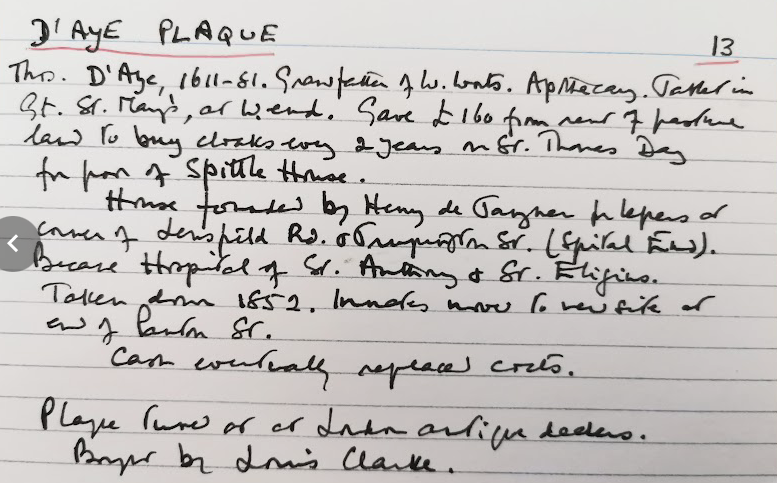 D'AYE PLAQUE 13
Thos. D'Aye, 1611-81. Grandfather of W. Worts. Apothecary. Tablet in
Gt. St. Mary's, at W. end. Gave £160 from rent of pasture
land to buy cloaks every 2 years on St. Thomas Day
for poor of Spittle House.
House founded by Henry de Tangmer for lepers at
corner of Lensfield Rd. & Trumpington St. (Spital End).
Became Hospital of St. Anthony & St. Eligius.
Taken down 1852. Inmates move to new site at
end of Panton St.
Cash eventually replaced coats.
Plaque turned up at London antique dealers.
Bought by Louis Clarke.